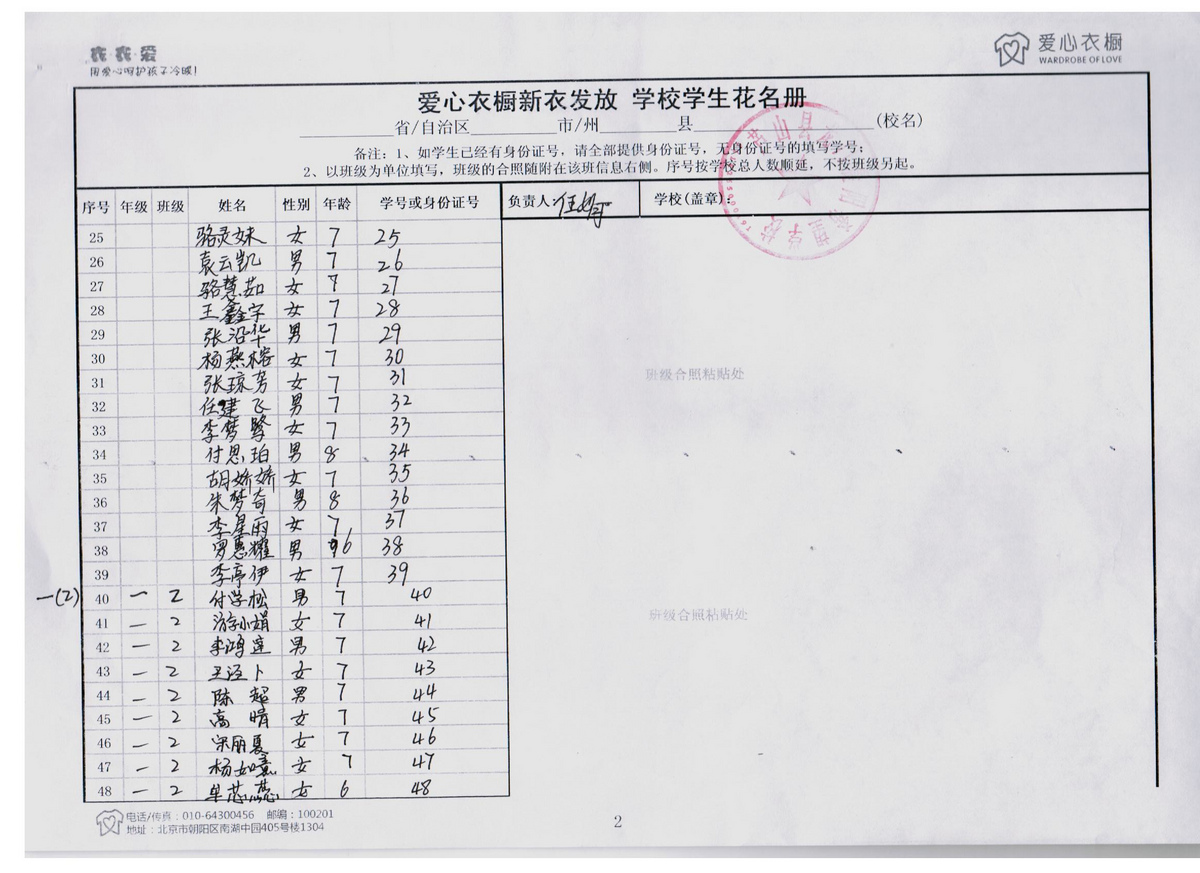 衣衣·爱
用爱心呵护孩子冷暖!
爱心衣橱
WARDROBE OF LOVE
爱心衣橱新衣发放 学校学生花名册
省/自治区 市/州 县 (校名)
备注:1、如学生已经有身份证号,请全部提供身份证号,无身份证号的填写学号;
2、以班级为单位填写,班级的合照随附在该班信息右侧。序号按学校总人数顺延,不按班级另起。
序号 年级 班级 姓名 性别 年龄 学号或身份证号 负责人: 学校(盖章):
25 骆灵妹 女 7 25
26 袁云凯 男 7 26
27 骆慧茹 女 7 27
28 王鑫宇 女 7 28
29 张沿华 男 7 29
30 杨燕榕 女 7 30
31 张琼芳 女 7 31
32 任建飞 男 7 32
33 李梦 女 7 33
34 付思珀 男 8 34
35 胡娇娇 女 7 35
36 朱梦奇 男 8 36
37 李星雨 女 7 37
38 罗惠耀 男 6 38
39 李亭伊 女 7 39
一(2) 40 一 2 付学松 男 7 40
41 一 2 游小娟 女 7 41
42 一 2 李鸿连 男 7 42
43 一 2 王泾卜 女 7 43
44 一 2 陈超 男 7 44
45 一 2 高晴 女 7 45
46 一 2 宋丽夏 女 7 46
47 一 2 杨如熹 女 7 47
48 一 2 单芯蕊 女 6 48
班级合照粘贴处
班级合照粘贴处
电话/传真:010-64300456 邮编:100201
地址:北京市朝阳区南湖中园405号楼1304
2